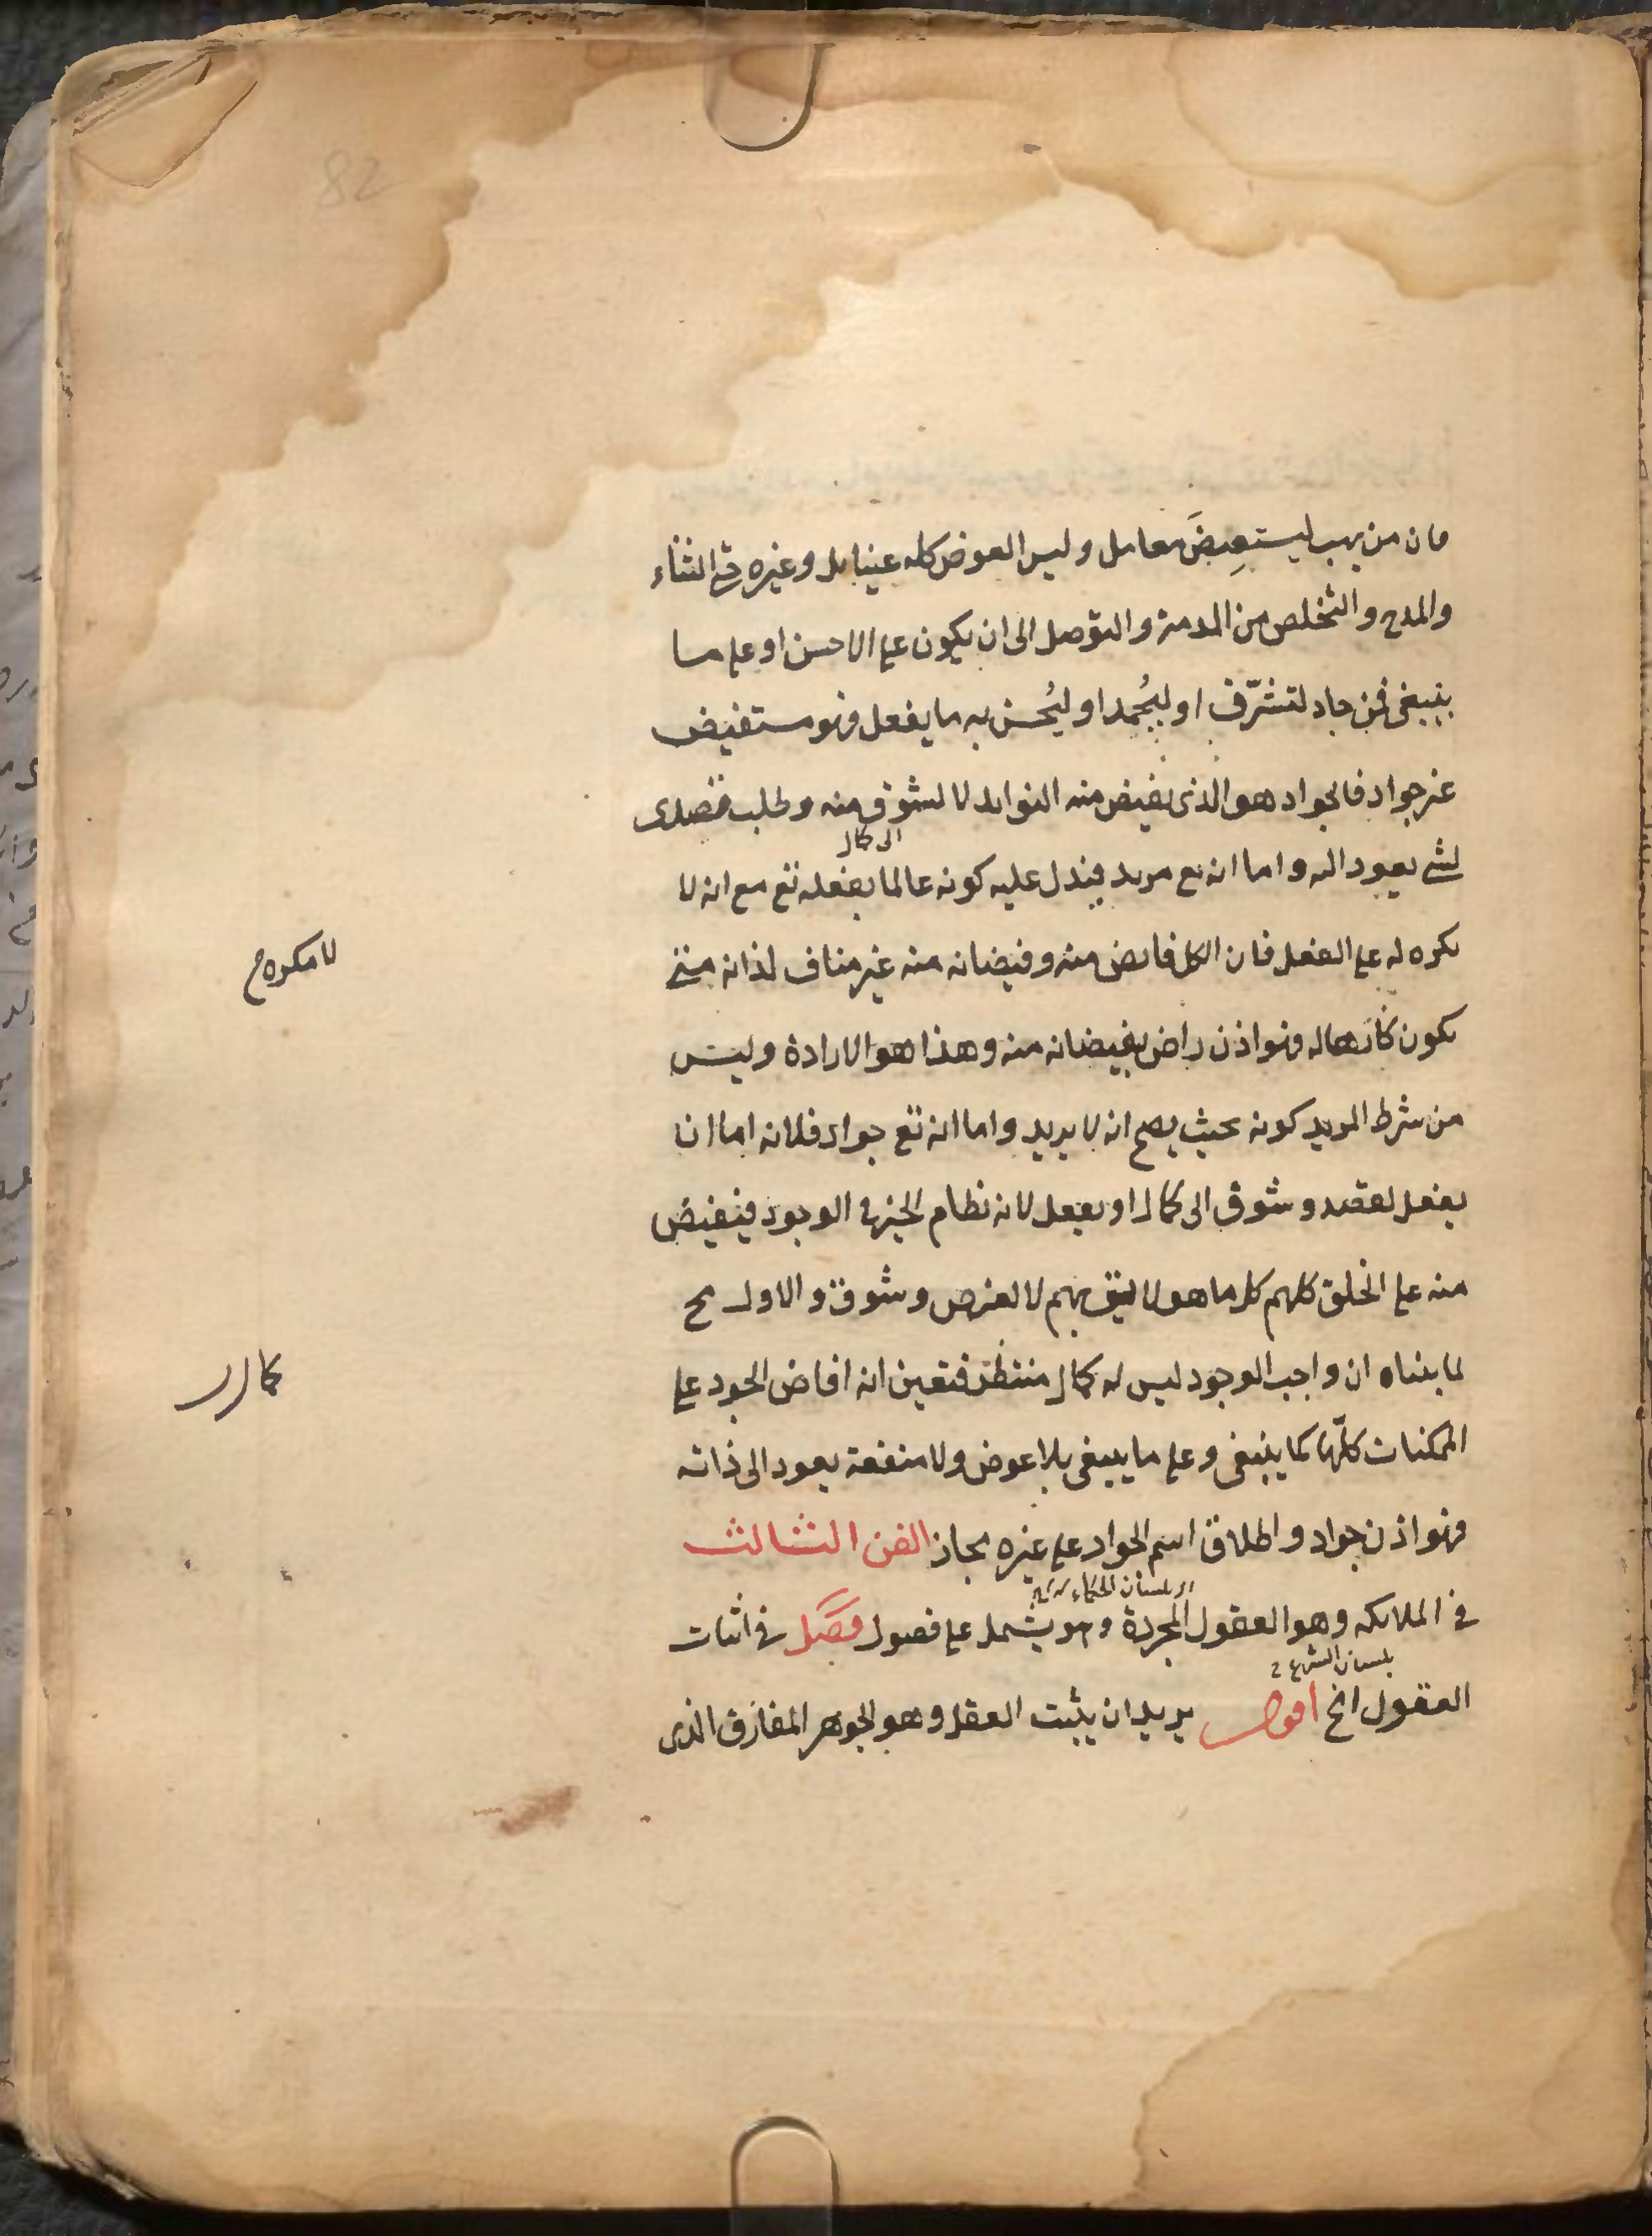 82
فان من يهب ليستعِيضَ معامل وليس العوض كله عينا بل وغيره حتى الثناء
والمدح والتخلص من المذمة والتوصل الى ان يكون على الاحسن او على ما
ينبغى فمن جاد لتشرّف او ليُحمد او ليُحسن به ما يفعل فهو مستفيض
غير جواد فالجواد هو الذى يفيض منه الفوايد لا لشوق منه وطلب قصدى
الى كمال
لشئ يعود اليه واما انه تع مريد فيدل عليه كونه عالما بفعله تع مع انه لا
مكره له على الفعل فان الكل فايض منه وفيضانه منه غير مناف لذاته حتى
لا مكره م
يكون كارها له فهو اذن راض بفيضانه منه وهذا هو الارادة وليس
من شرط المريد كونه بحيث يصح انه لا يريد واما انه تع جواد فلانه اما ان
يفعل لقصد وشوق الى كمال او يفعل لانه نظام الخير فى الوجود فيفيض
منه على الخلق كلهم كل ما هو لا ليق بهم لا لغرض وشوق والاول مح
لما بيناه ان واجب الوجود ليس له كمال منتظر فتعين انه افاض الجود على
كمال
الممكنات كلّها كما ينبغى وعلى ما ينبغى بلا عوض ولا منفعة يعود الى ذاته
فهو اذن جواد واطلاق اسم الجواد على غيره مجاز الفن الثالث
بلسان الحكماء
فى الملائكه وهو العقول المجردة وهو يشمل على فصول فصل فى اثبات
بلسان الشرع
العقول الخ اقول يريد ان يثبت العقل وهو الجوهر المفارق الذى